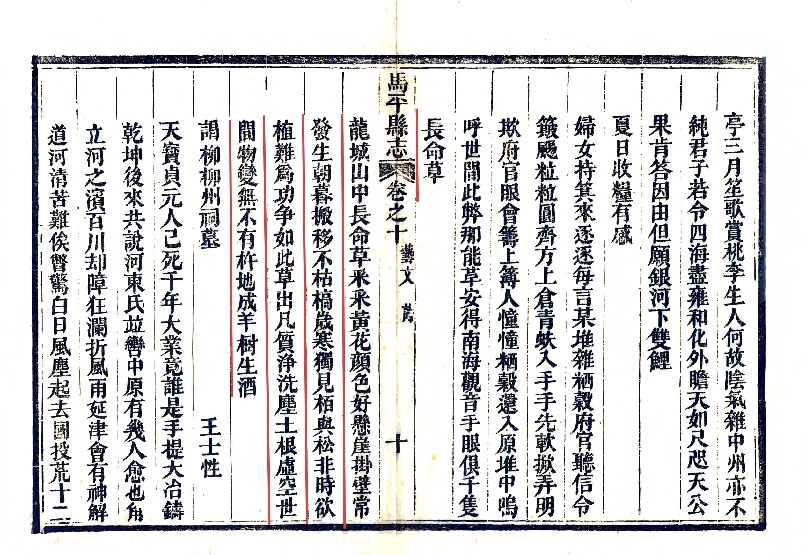 亭三月笙歌賞桃李生人何故陰氣雜中州亦不
純君子若令四海盡雍和化外瞻天如尺咫天公
果肯答因由但願銀河下雙鯉
夏日收糧有感
婦女持箕來逐逐每言某堆雜粞穀府官聽信令
簸颺粒粒圓齊方上倉青蚨入手手先軟掀弄明
欺府官眼會籌上簿人憧憧粞穀還入原堆中嗚
呼世間此弊那能草安得南海觀音手眼俱千隻
長命草
馬平縣志 卷之十 藝文 十
龍城山中長命草釆釆黃花顔色好懸崖掛壁常
發生朝暮搬移不枯槁歲寒獨見栢與松非時欲
植難為功争如此草出凡質淨洗塵土根虛空世
間物變無不有杵地成羊樹生酒
謁柳柳州祠墓 王士性
天寶貞元人已死千年大業竟誰是手提大冶鑄
乾坤後來共說河東氏並轡中原有幾人愈也角
立河之濱百川却障狂瀾折風雨延津會有神解
道河清苦難俟瞥驚白日風塵起去國投荒十二